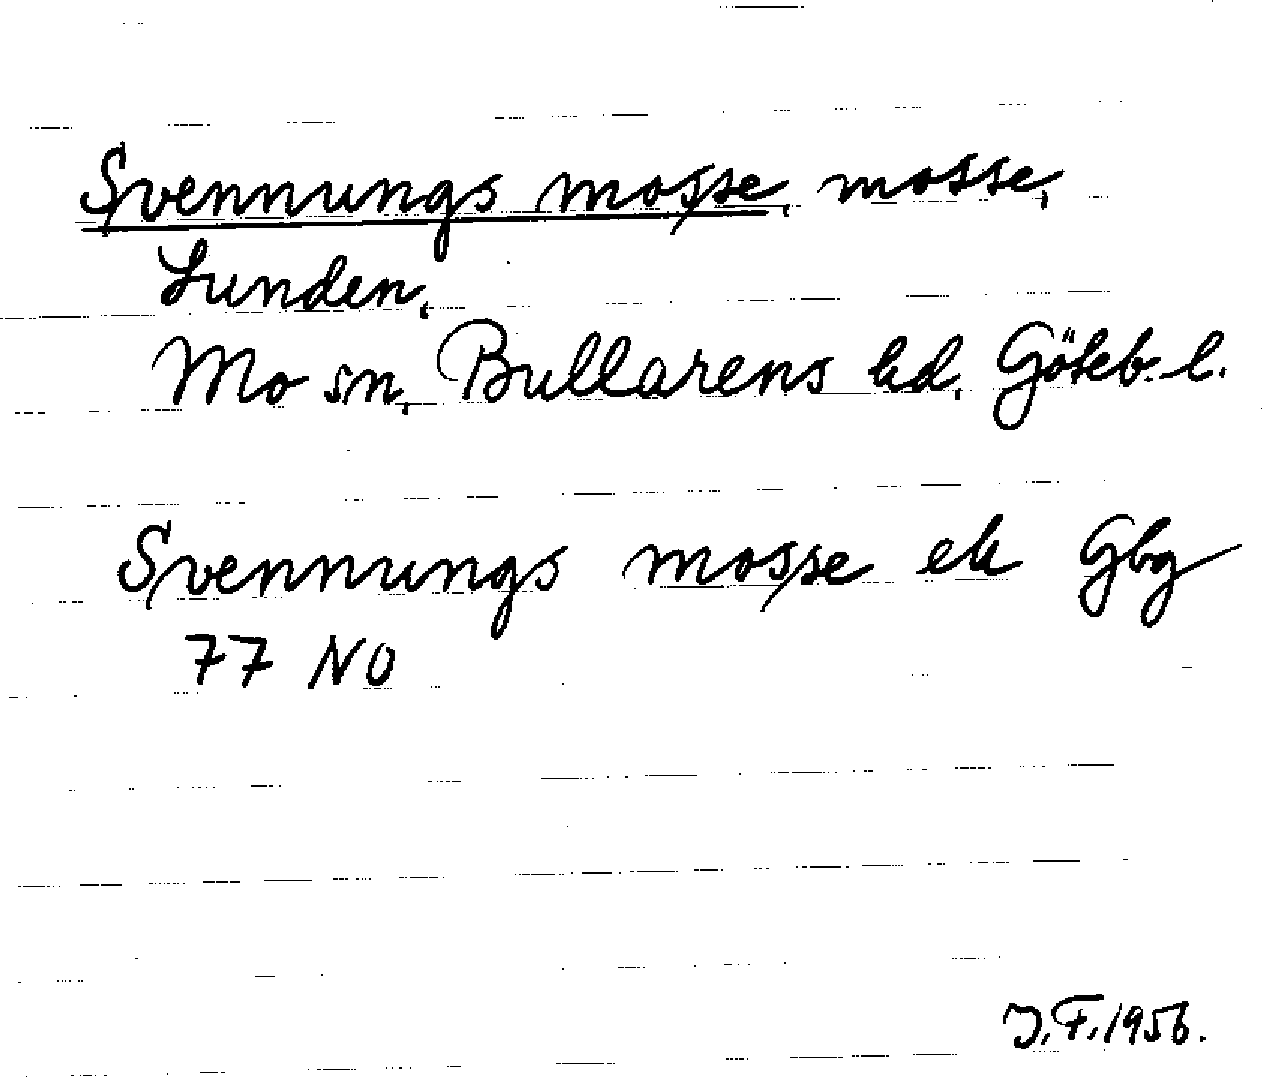 Svennungs mosse, mosse,
Lunden,
Mo sn, Bullarens hd, Göteb.-l.
Svennungs mosse ek Gbg
77 NO
J.F. 1956.